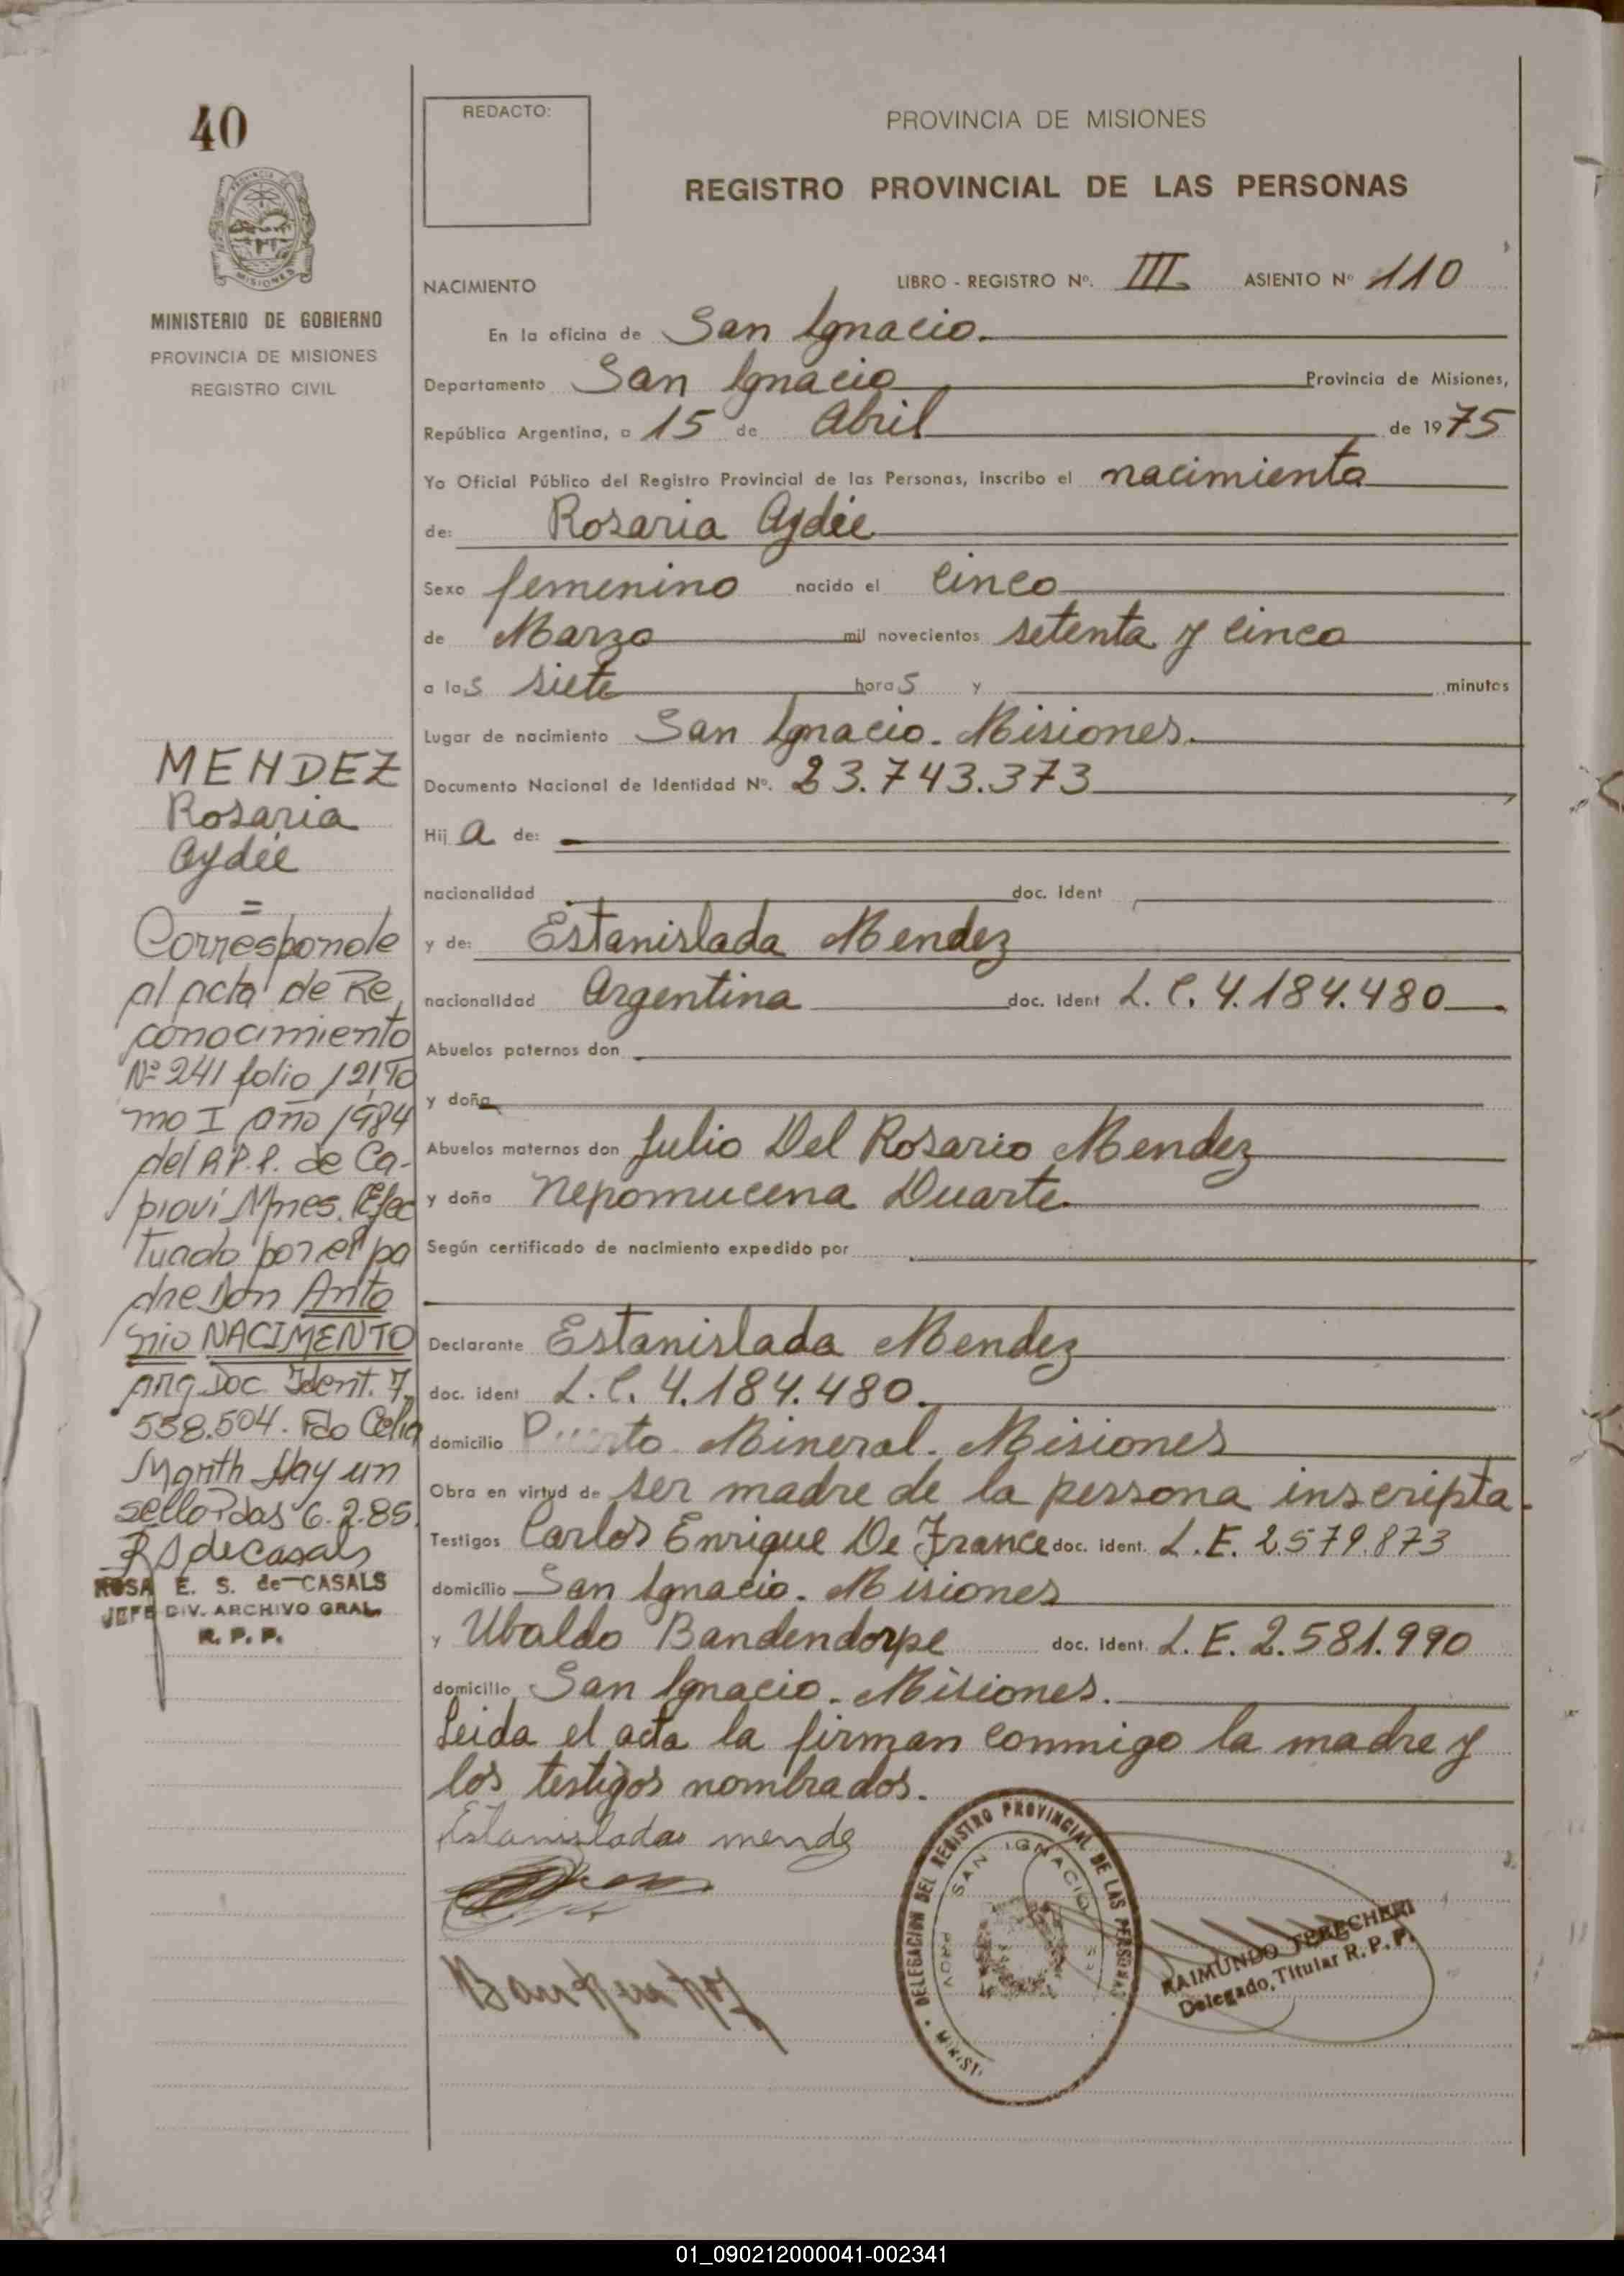 40
PROVINCIA DE
MISIONES
MINISTERIO DE GOBIERNO
PROVINCIA DE MISIONES
REGISTRO CIVIL
MENDEZ
Rosaria
Aydée
=
Corresponde
al acta de Re
conocimiento
Nº 241 folio 121 To
mo I año 1984
del R.P.P. de Ca-
pioví Mnes. Efec
tuado por el pa
dre Don Anto
nio NACIMENTO
Arg Doc Ident. 7.
558.504. Fdo Celia
Hay un
sello Pdas 6.2.85
R S de Casals
ROSA E. S. de CASALS
JEFE DIV. ARCHIVO GRAL.
R. P. P.
REDACTO:
PROVINCIA DE MISIONES
REGISTRO PROVINCIAL DE LAS PERSONAS
NACIMIENTO LIBRO - REGISTRO Nº. III ASIENTO Nº 110
En la oficina de San Ignacio.
Departamento San Ignacio Provincia de Misiones,
República Argentina, a 15 de Abril de 1975
Yo Oficial Público del Registro Provincial de las Personas, inscribo el nacimiento
de: Rosaria Aydée
Sexo femenino nacido el cinco
de Marzo mil novecientos setenta y cinco
a las siete horas y minutos
Lugar de nacimiento San Ignacio. Misiones.
Documento Nacional de Identidad Nº. 23.743.373
Hij a de:
nacionalidad doc. ident
y de: Estanislada Mendez
nacionalidad Argentina doc. ident L. C. 4.184.480
Abuelos paternos don
y doña
Abuelos maternos don Julio Del Rosario Mendez
y doña Nepomucena Duarte
Según certificado de nacimiento expedido por
Declarante Estanislada Mendez
doc. ident L. C. 4.184.480.
domicilio Puerto Mineral. Misiones
Obra en virtud de ser madre de la persona inscripta.
Testigos Carlos Enrique De France doc. ident. L.E. 2.579.873
domicilio San Ignacio. Misiones
y Ubaldo Bandendorpe doc. ident. L.E. 2.581.990
domicilio San Ignacio. Misiones.
Leida el acta la firman conmigo la madre y
los testigos nombrados.
Estanislada mende
DELEGACION DEL REGISTRO PROVINCIAL DE LAS PERSONAS
SAN IGNACIO
PROV
RAIMUNDO TERECHERI
Delegado Titular R.P.P.
01_090212000041-002341